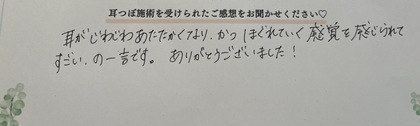 耳つぼ施術を受けられたご感想をお聞かせください♡
耳がじわじわあたたかくなり、かつほぐれていく感覚を感じられて
すごい、の一言です。ありがとうございました!